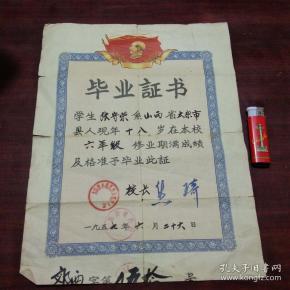 毕业証书
学生 系山西省太原市
县人现年十八岁在本校
六年级修业期满成绩
及格准予毕业此証
校长
一九五七年六月二十六日
字第 号
孔夫子旧书网